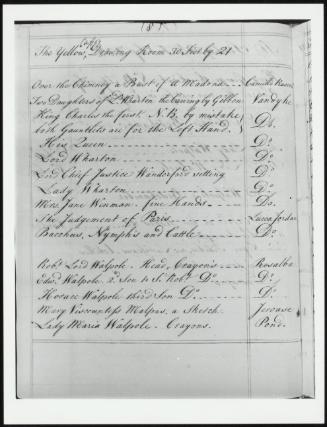 187
The Yellow Drawing Room 30 Feet by 21.
Over the Chimney a Bust of a Madona Camillo Rusconi
Two Daughters of Ld. Wharton the Carving by Gibbon Vandyke
King Charles the first N.B. by mistake
both Gauntlets are for the Left Hand. Do.
His Queen Do.
Lord Wharton Do.
Lord Chief Justice Wandesford sitting Do.
Lady Wharton Do.
Mrs. Jane Wenman. fine Hands Do.
The Judgement of Paris Lucca Jordano
Bacchus, Nymphs and Cattle Do.
Robt. Lord Walpole. Head, Crayons Rosalba
Edwd. Walpole, 2d. Son to Sr. Robt. Do. Do.
Horace Walpole third Son Do. Do.
Mary Viscountess Malpas, a Sketch. Jervase
Lady Maria Walpole. Crayons. Pond.